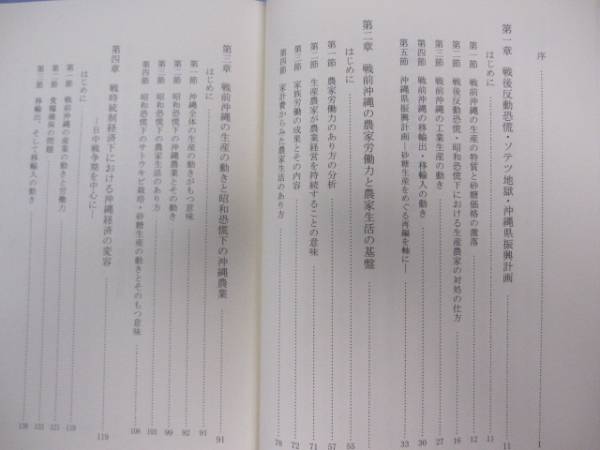 序 1
第一章 戦後反動恐慌・ソテツ地獄・沖縄県振興計画 11
はじめに 11
第一節 戦前沖縄の生産の特質と砂糖価格の激落 12
第二節 戦後反動恐慌・昭和恐慌下における生産農家の対処の仕方 16
第三節 戦前沖縄の工業生産の動き 27
第四節 戦前沖縄の移輸出・移輸入の動き 30
第五節 沖縄県振興計画―砂糖生産をめぐる再編を軸に― 33
第二章 戦前沖縄の農家労働力と農家生活の基盤 55
はじめに 55
第一節 農家労働力のあり方の分析 57
第二節 生産農家が農業経営を持続することの意味 71
第三節 家族労働の成果とその内容 72
第四節 家計費からみた農家生活のあり方 78
第三章 戦前沖縄の生産の動きと昭和恐慌下の沖縄農業 91
はじめに 91
第一節 沖縄全体の生産の動きがもつ意味 92
第二節 昭和恐慌下の沖縄農業とその動き 99
第三節 昭和恐慌下の農家生活のあり方 103
第四節 昭和恐慌下のサトウキビ栽培・砂糖生産の動きとそのもつ意味 108
第四章 戦時統制経済下における沖縄経済の変容
―日中戦争期を中心に― 119
はじめに 119
第一節 戦前沖縄の産業の動きと労働力
第二節 食糧確保の問題
第三節 移輸出、そして移輸入の動き